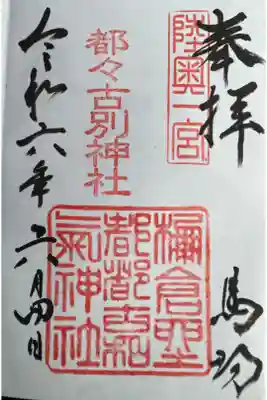 奉拝
馬場
陸奥一宮
都々古別神社
棚倉
都都古和
氣神社
令和六年六月四日